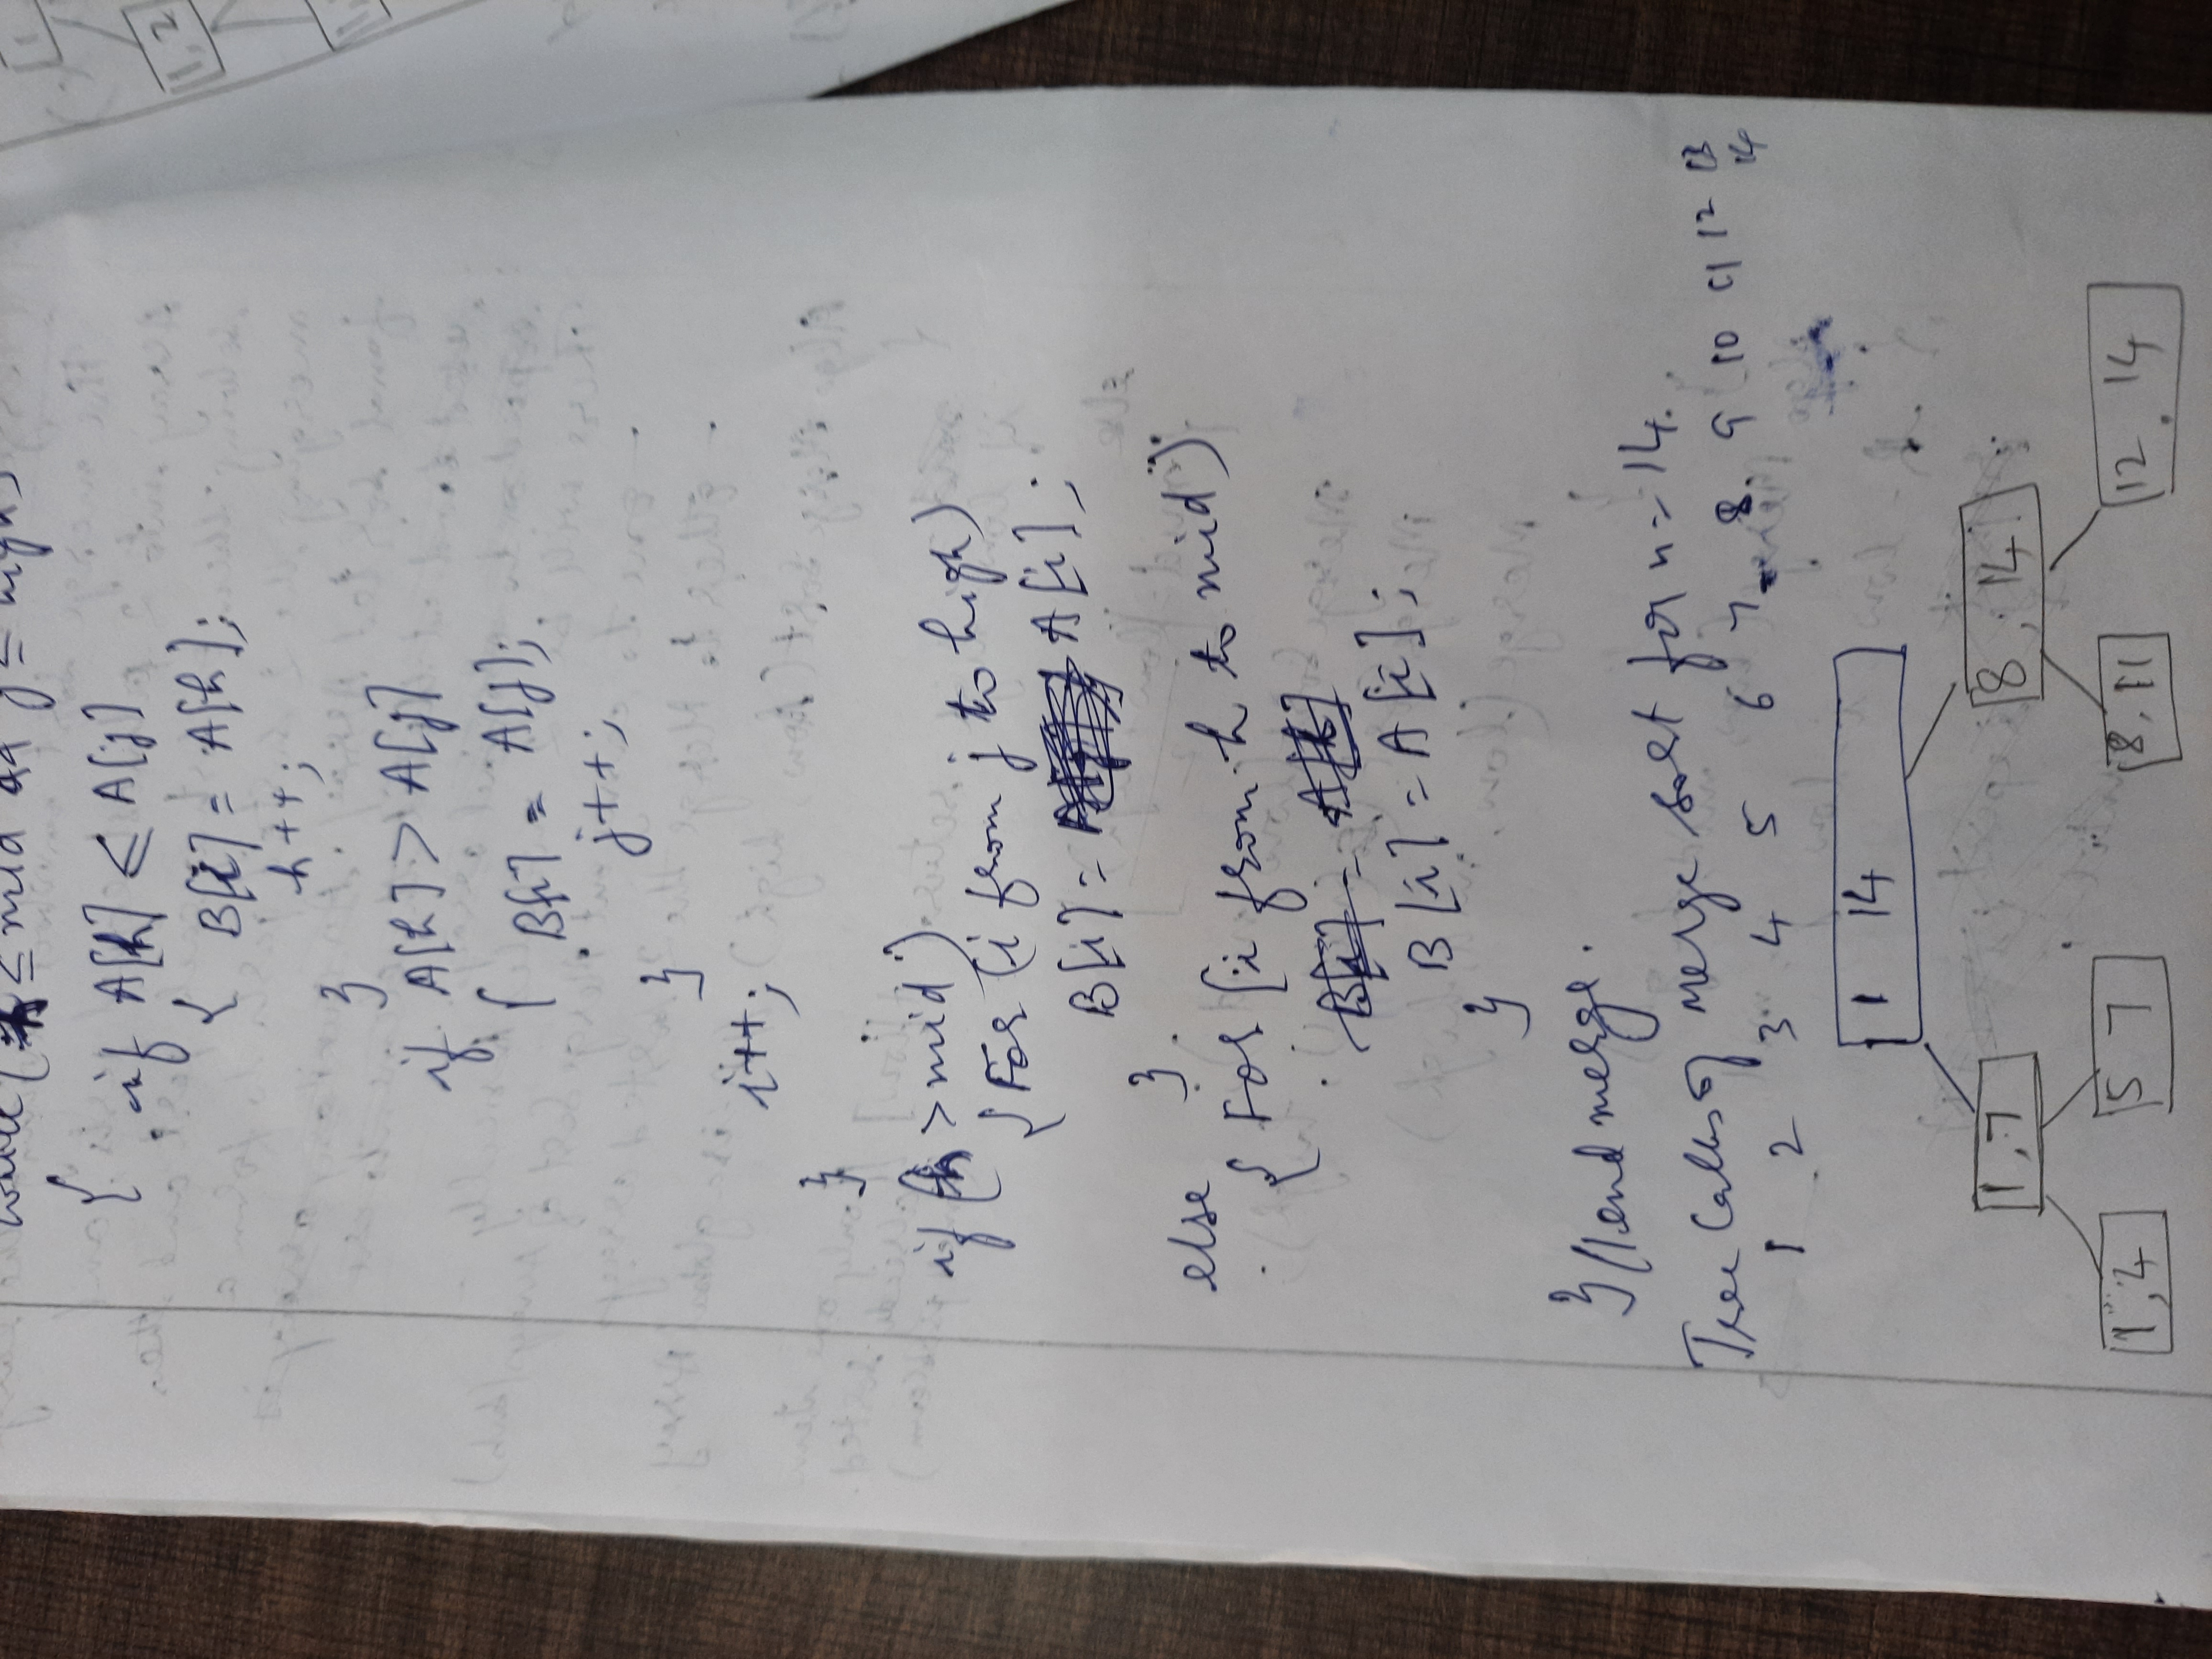 while (h ≤ mid && j ≤ high)
{ if A[h] ≤ A[j]
{ B[i] = A[h];
h++;
}
if A[h] > A[j]
{ B[i] = A[j];
j++;
}
i++;
}
if (h > mid)
{ For (i from j to high)
B[i] = A[i];
}
else
{ For (i from h to mid)
B[i] = A[h]
B[i] = A[i];
}
} //end merge.
Tree Calls of merge sort for n = 14.
1 2 3 4 5 6 7 8 9 10 11 12 13
14
1 14
1,7 8, 14
1,4 5 7 8,11 12, 14
1
1,2